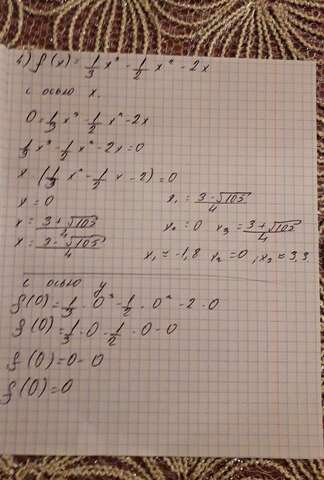 4) f(x) = 1/3 x³ - 1/2 x² - 2x
с осью x.
0 = 1/3 x³ - 1/2 x² - 2x
1/3 x³ - 1/2 x² - 2x = 0
x (1/3 x² - 1/2 x - 2) = 0
x = 0
x = (3+√105)/4
x = (3-√105)/4
x₁ = (3-√105)/4
x₂ = 0 x₃ = (3+√105)/4
x₁ ≈ -1,8 x₂ = 0, x₃ ≈ 3,3
с осью y
f(0) = 1/3 · 0³ - 1/2 · 0² - 2 · 0
f(0) = 1/3 · 0 - 1/2 · 0 - 0
f(0) = 0 - 0
f(0) = 0